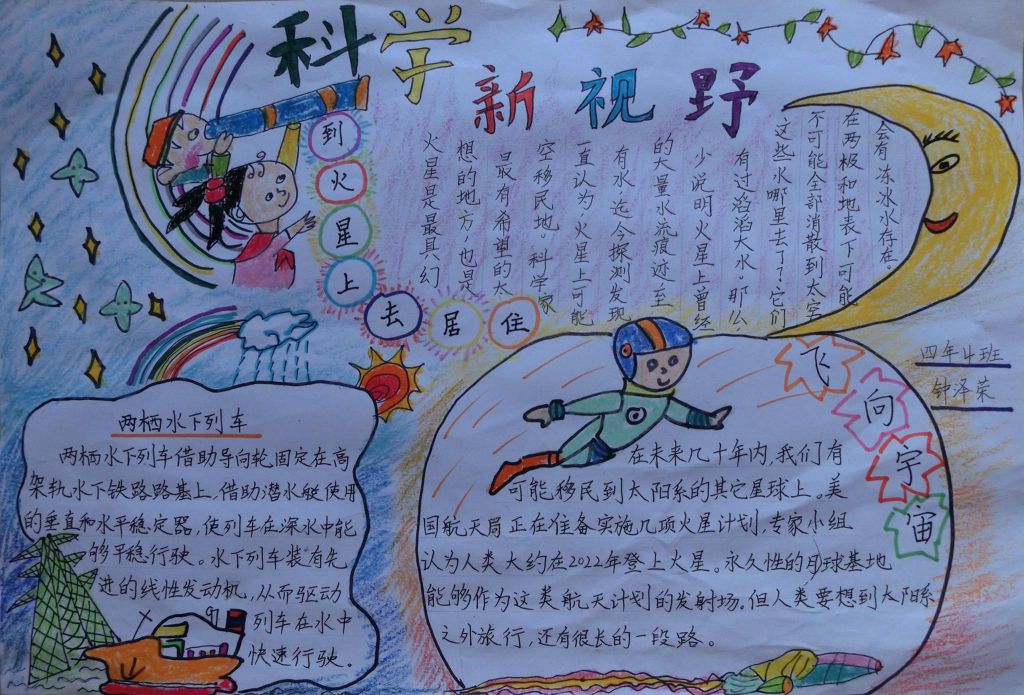 科学
新视野
到火星上去居住
火星是最具幻
想的地方,也是
最有希望的太
空移民地。科学家
一直认为,火星上可能
有水,迄今探测发现
的大量水流痕迹至
少说明火星上曾经
有过滔滔大水,那么
这些水哪里去了?它们
不可能全部消散到太空
在两极和地表下可能
会有冻冰水存在。
四年4班
钟泽荣
两栖水下列车
两栖水下列车借助导向轮固定在高
架轨水下铁路路基上,借助潜水艇使用
的垂直和水平稳定器,使列车在深水中能
够平稳行驶。水下列车装有先
进的线性发动机,从而驱动
列车在水中
快速行驶。
飞向宇宙
在未来几十年内,我们有
可能移民到太阳系的其它星球上。美
国航天局正在准备实施几项火星计划,专家小组
认为人类大约在2022年登上火星。永久性的月球基地
能够作为这类航天计划的发射场。但人类要想到太阳系
之外旅行,还有很长的一段路。